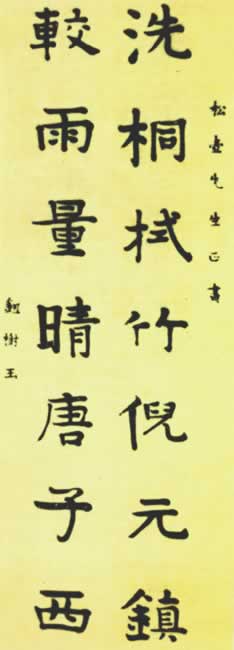 松壺先生正書
洗桐拭竹倪元鎮
較雨量晴唐子西
樹玉